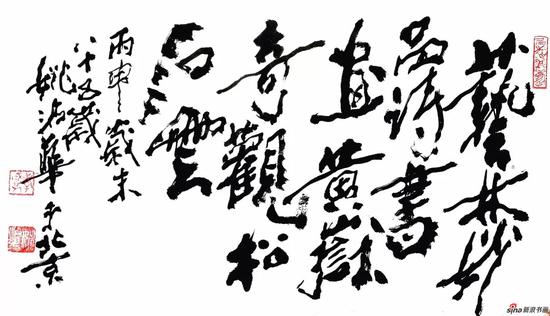 藝林妙
品詩書
畫黃嶽
奇觀松
石雲
丙申歲末
八十五歲
姚治華于北京
sina 新浪书画